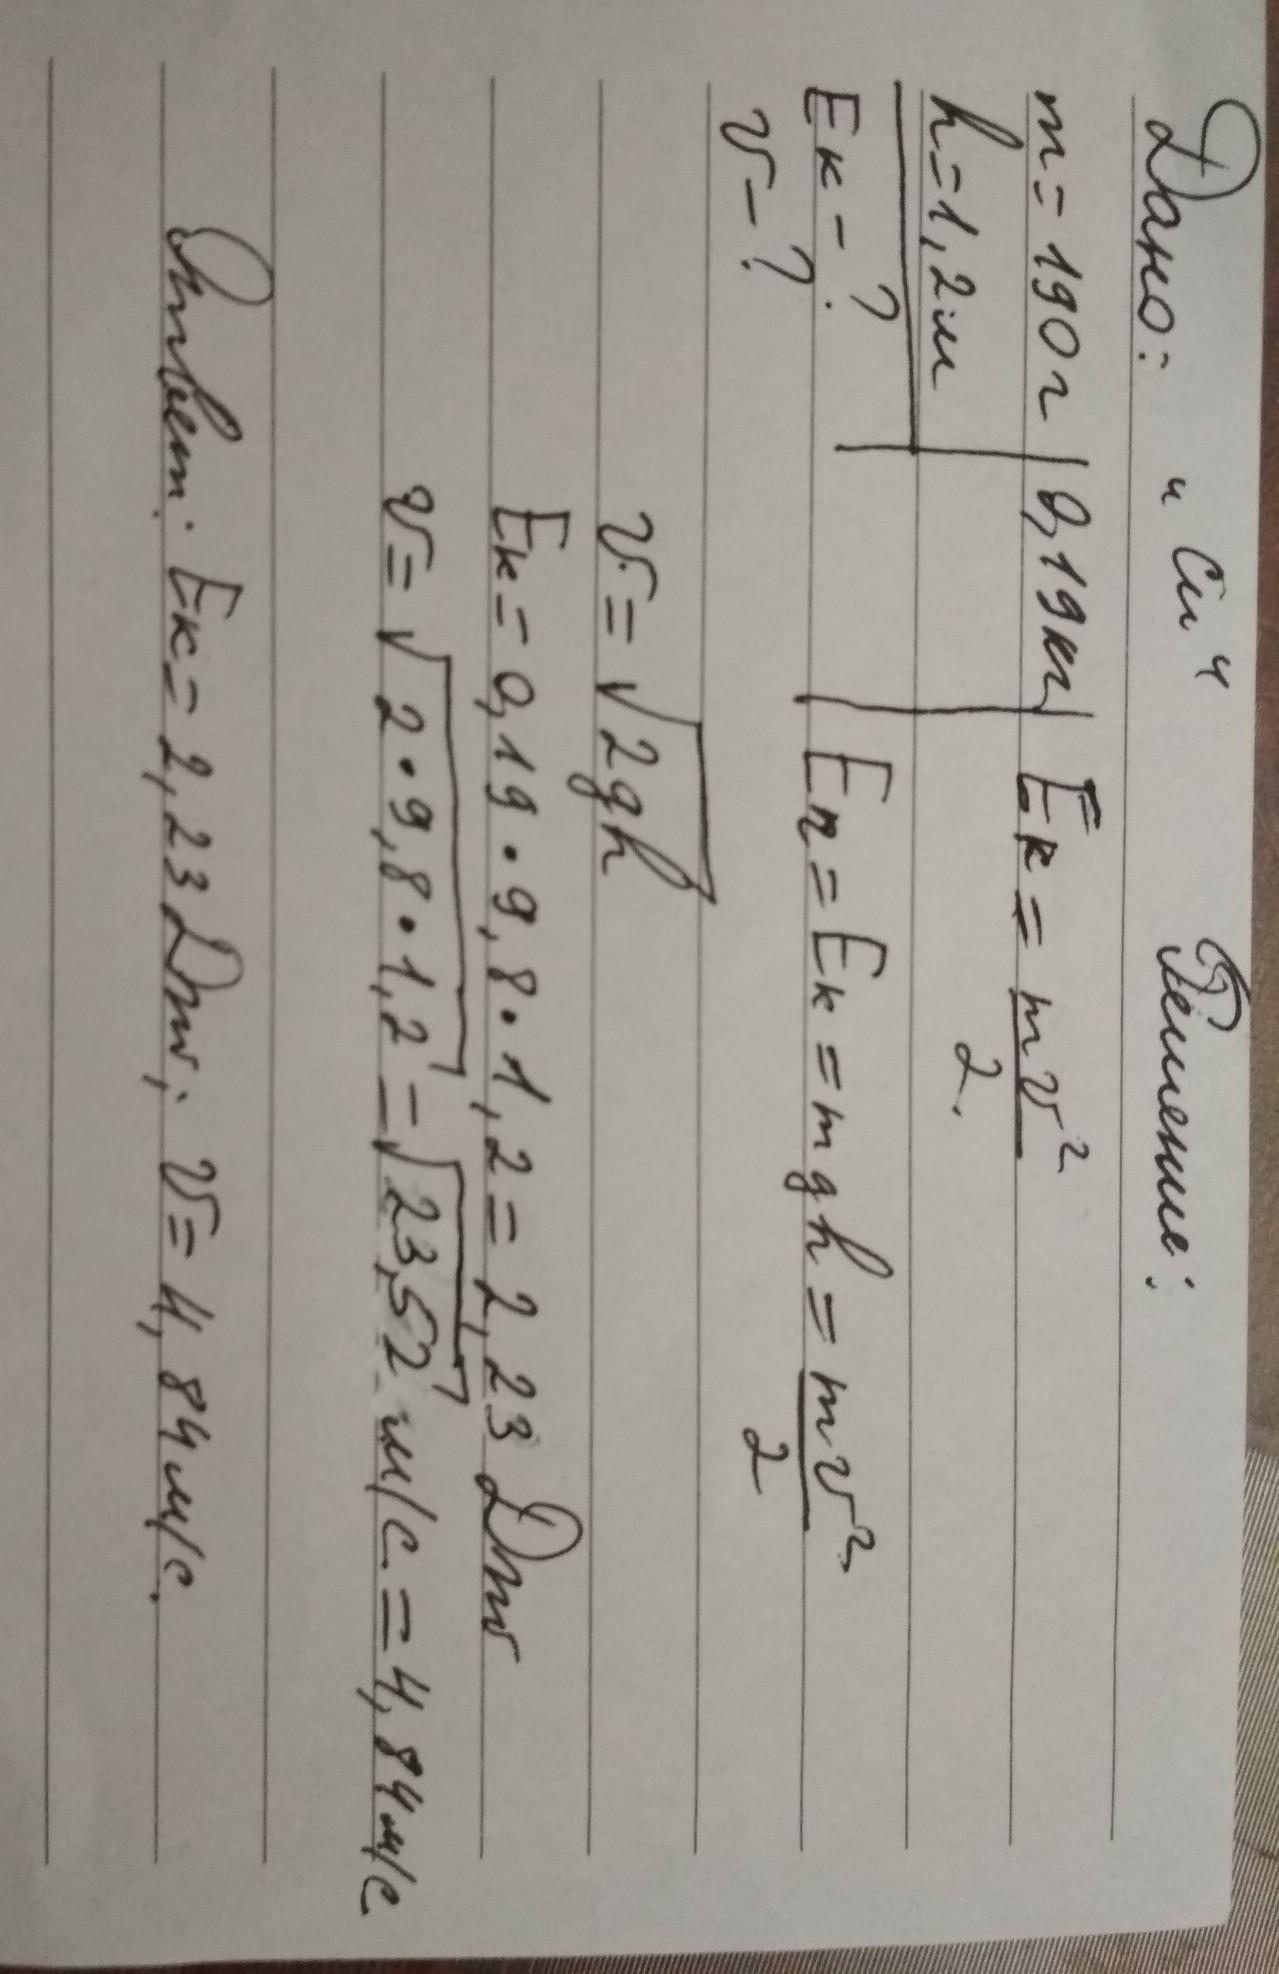 Дано: "Си" Решение:
m = 190 г | 0,19 кг | Eк = mv²/2.
h = 1,2 м
Eк - ? Eп = Eк = mgh = mv²/2
v - ?
v = √2gh
Eк = 0,19 · 9,8 · 1,2 = 2,23 Дж
v = √2 · 9,8 · 1,2 = √23,52 м/с = 4,84 м/с
Ответ: Eк = 2,23 Дж; v = 4,84 м/с.